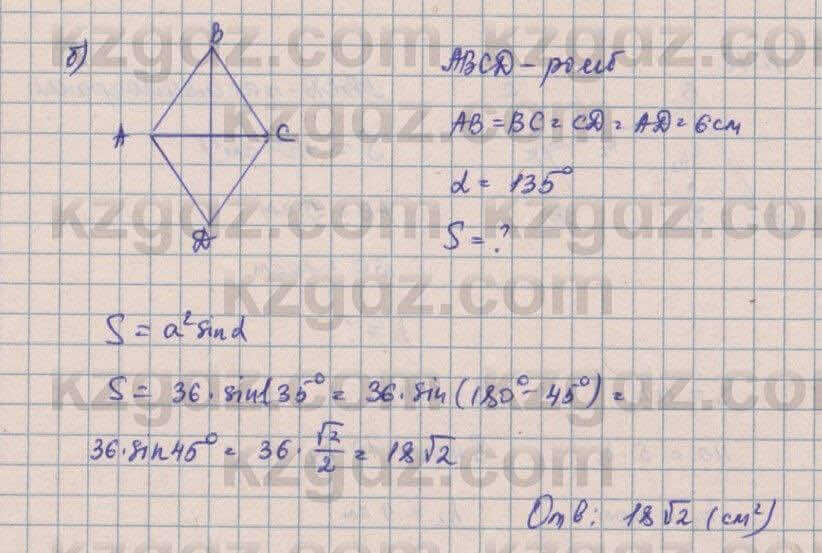 б)
B
A
C
D
ABCD - ромб
AB = BC = CD = AD = 6 см
α = 135°
S = ?
S = a² sin α
S = 36 · sin 135° = 36 · sin (180° - 45°) =
36 · sin 45° = 36 · √2/2 = 18√2
Отв: 18√2 (см²)
kzgdz.com kzgdz.com
kzgdz.com
kzgdz.com kzgdz.com
kzgdz.com
kzgdz.com kzgdz.com
kzgdz.com